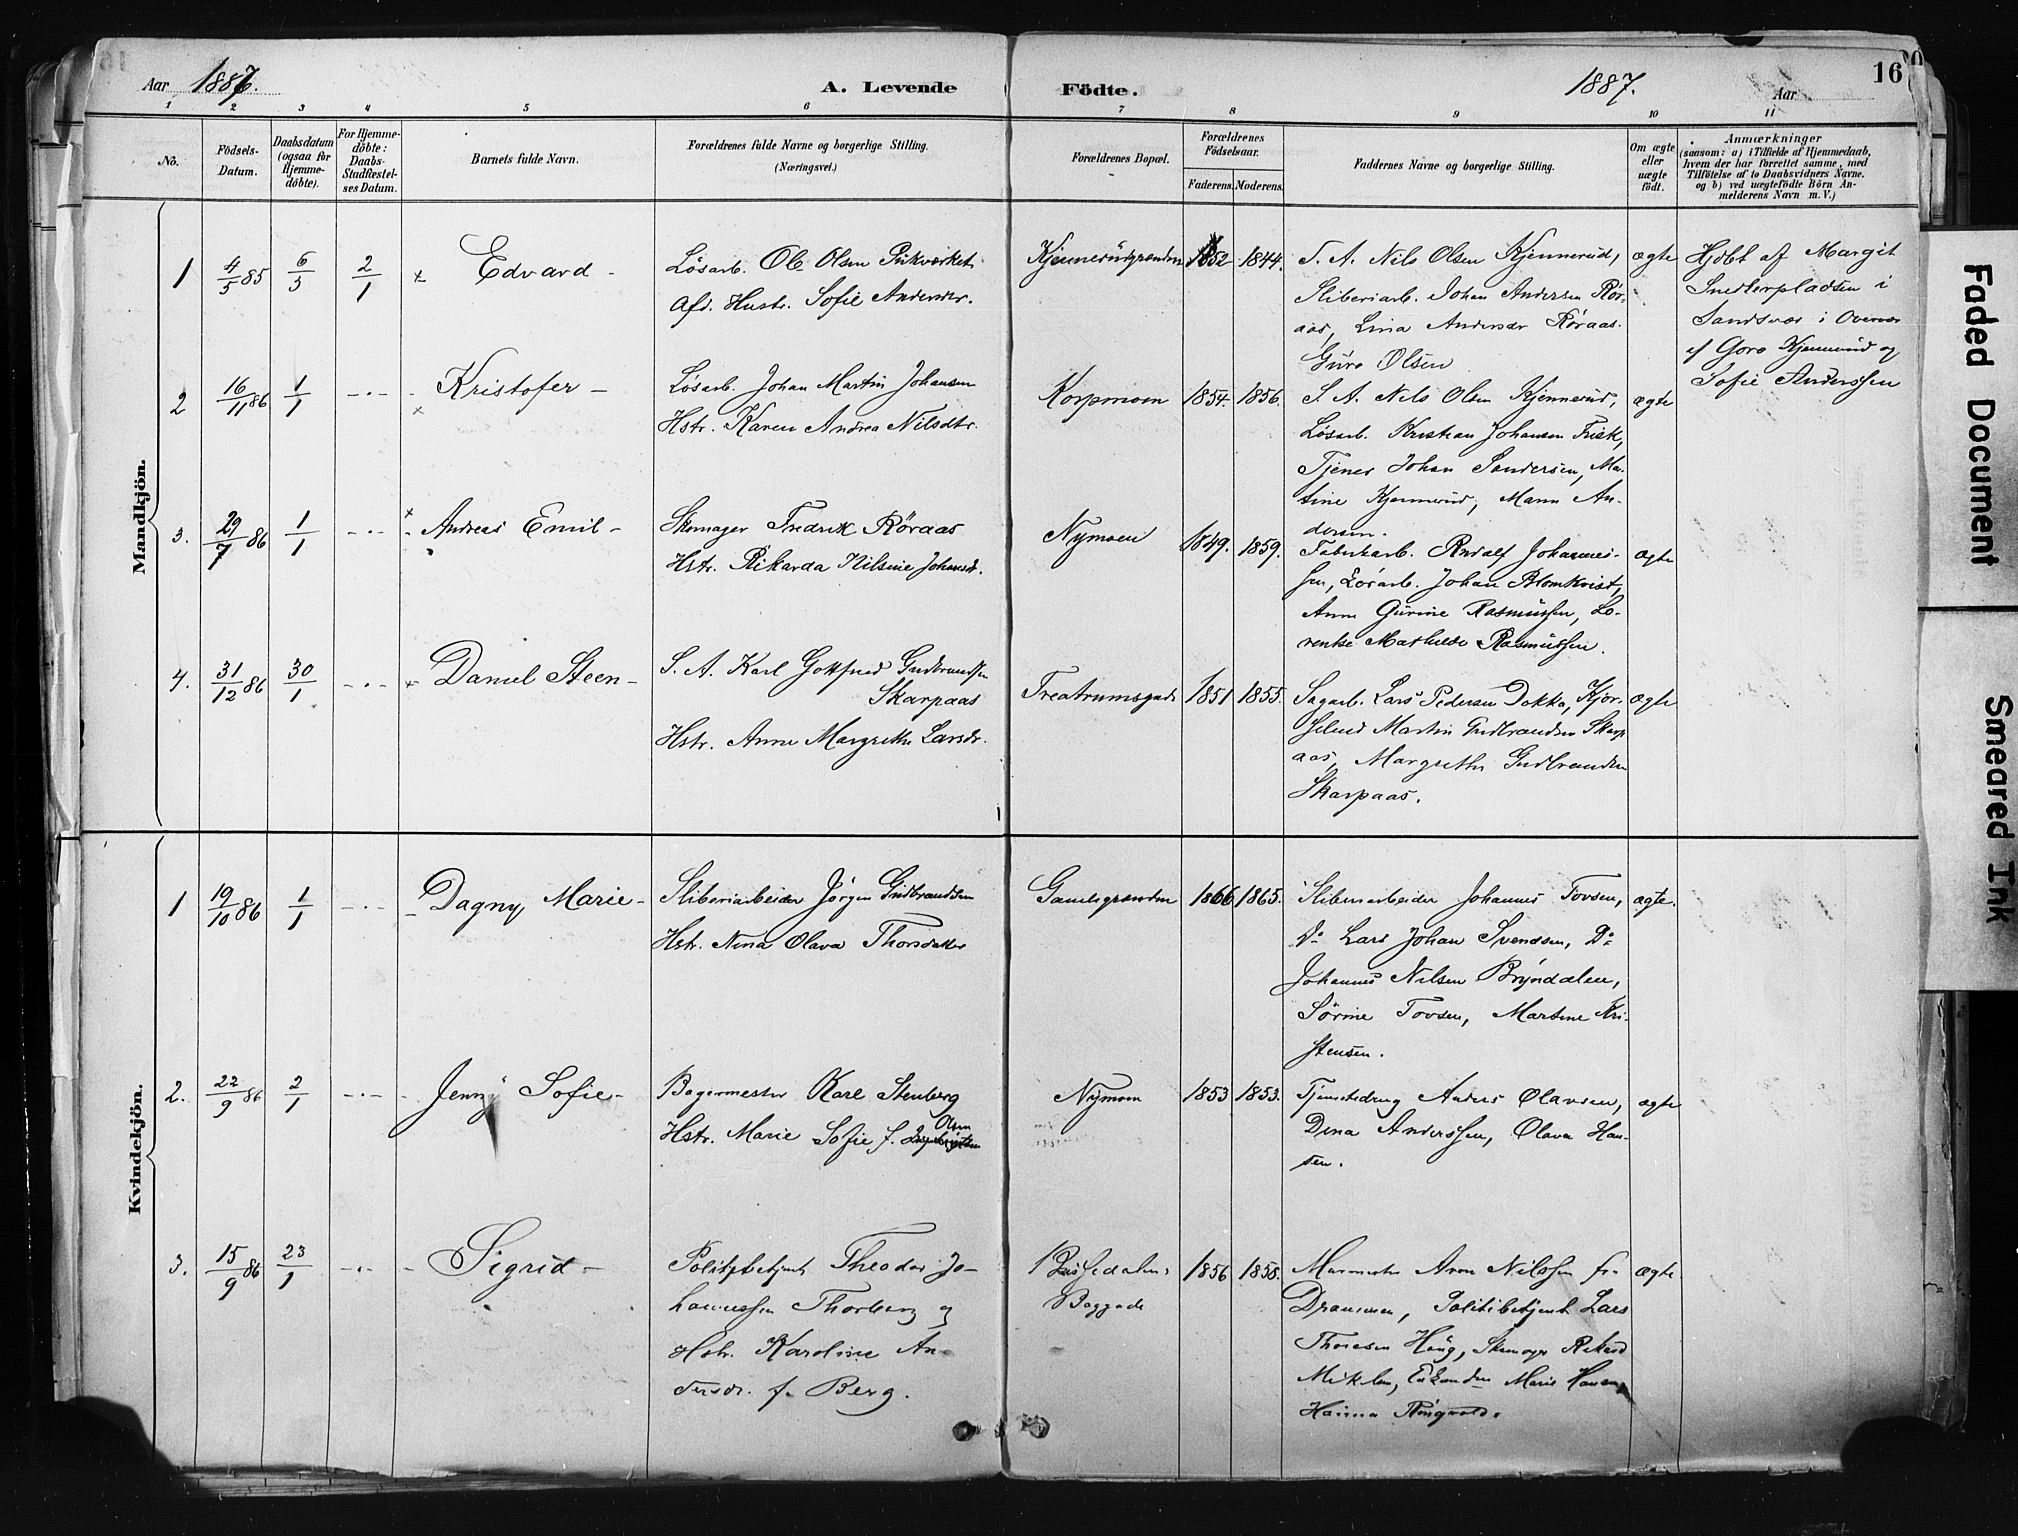 Aar 1887.
A. Levende
Födte.
1887.
Aar
16
1 2 3 4 5 6 7 8 9 10 11
No.
Födsels-Datum.
Daabsdatum (ogsaa for Hjemme-döbte).
For Hjemme-döbte: Daabs-Stadfæstel-ses Datum.
Barnets fulde Navn.
Forældrenes fulde Navne og borgerlige Stilling.
(Næringsvei.)
Forældrenes Bopæl.
Forældrenes Födselsaar.
Faderens. Moderens.
Faddernes Navne og borgerlige Stilling.
Om ægte eller uægte födt.
Anmærkninger
(saasom: a) i Tilfælde af Hjemmedaab,
hvem der har forrettet samme, med
Tilföielse af to Daabsvidners Navne.
og b) ved uægtefödte Börn An-
melderens Navn m. V.)
Mandkjön.
1 4/5 85 6/5 2/1 Edvard -
Løsarb. Ole Olsen Pukværket
Afd. Hustr. Sofie Andersdr.
Kjennerudgrænden 1852 1844.
S. A. Nils Olsen Kjennerud,
Sliberiarb. Johan Andersen Rør-
aas, Lina Andersdr Røraas.
Guro Olsen
ægte
Hjdbt af Margit
Snedkerpladsen i
Sandsvær i Overvær
af Goro Kjennerud og
Sofie Anderssen
2 16/11 86 1/1 Kristofer -
Løsarb. Johan Martin Johansen
Hstr. Karen Andrea Nilsdtr.
Korpmoen 1854. 1856.
S. A. Nils Olsen Kjennerud,
Løsarb. Kristian Johansen Frisk,
Tjener Johan Sandersen, Mar-
tine Kjennerud, Maren An-
dersen.
ægte
3. 29/7 86 1/1 Andreas Emil -
Skomager Fredrik Røraas
Hstr. Rikarda Nilsine Johansdr.
Nymoen 1849. 1859.
Fabrikarb. Rudolf Johannes-
sen, Løsarb. Johan Blomkvist,
Anne Gurine Rasmussen, Lo-
rentse Mathilde Rasmussen.
ægte
4. 31/12 86 30/1 Daniel Steen -
S. A. Karl Gottfred Gudbrandsen
Skarpaas
Hstr. Anne Margrethe Larsdr.
1851 1855.
Sagarb. Lars Pedersen Dokka, Kjør-
Martin Gudbrandsen Skarp
aas, Margrethe Gudbrandsen
Skarpaas.
ægte
Kvindekjön.
1 19/10 86 1/1 Dagny Marie -
Sliberiarbeider Jörgen Gudbrandsen
Hstr. Nina Olava Thorsdatter
Gamlegrænden 1866 1865.
Sliberiarbeider Johannes Tovsen,
Do Lars Johan Svendsen, Do
Johannes Nilsen Bryndalen,
Sörine Tovsen, Martine Kri-
stensen.
ægte.
2. 22/9 86 2/1 Jenny Sofie -
Bagermester Karl Stenberg
Hstr. Marie Sofie f. Olsen
Nymoen 1853 1853.
Tjenestedreng Anders Olavsen,
Dina Anderssen, Olava Han-
sen.
ægte
3. 15/9 86 23/1 Sigrid -
Politibetjent Theodor Jo-
hannessen Thorberg og
Hstr. Karoline An-
dersdr. f. Berg.
Baggade
1856 1858.
Murmester Aron Nilssen fr.
Drammen, Politibetjent Lars
Thoresen Haug, Skomager Rikard
Miklsen, Marie Hansen,
Hanna Ringvold.
ægte.
Faded Document
Smeared Ink